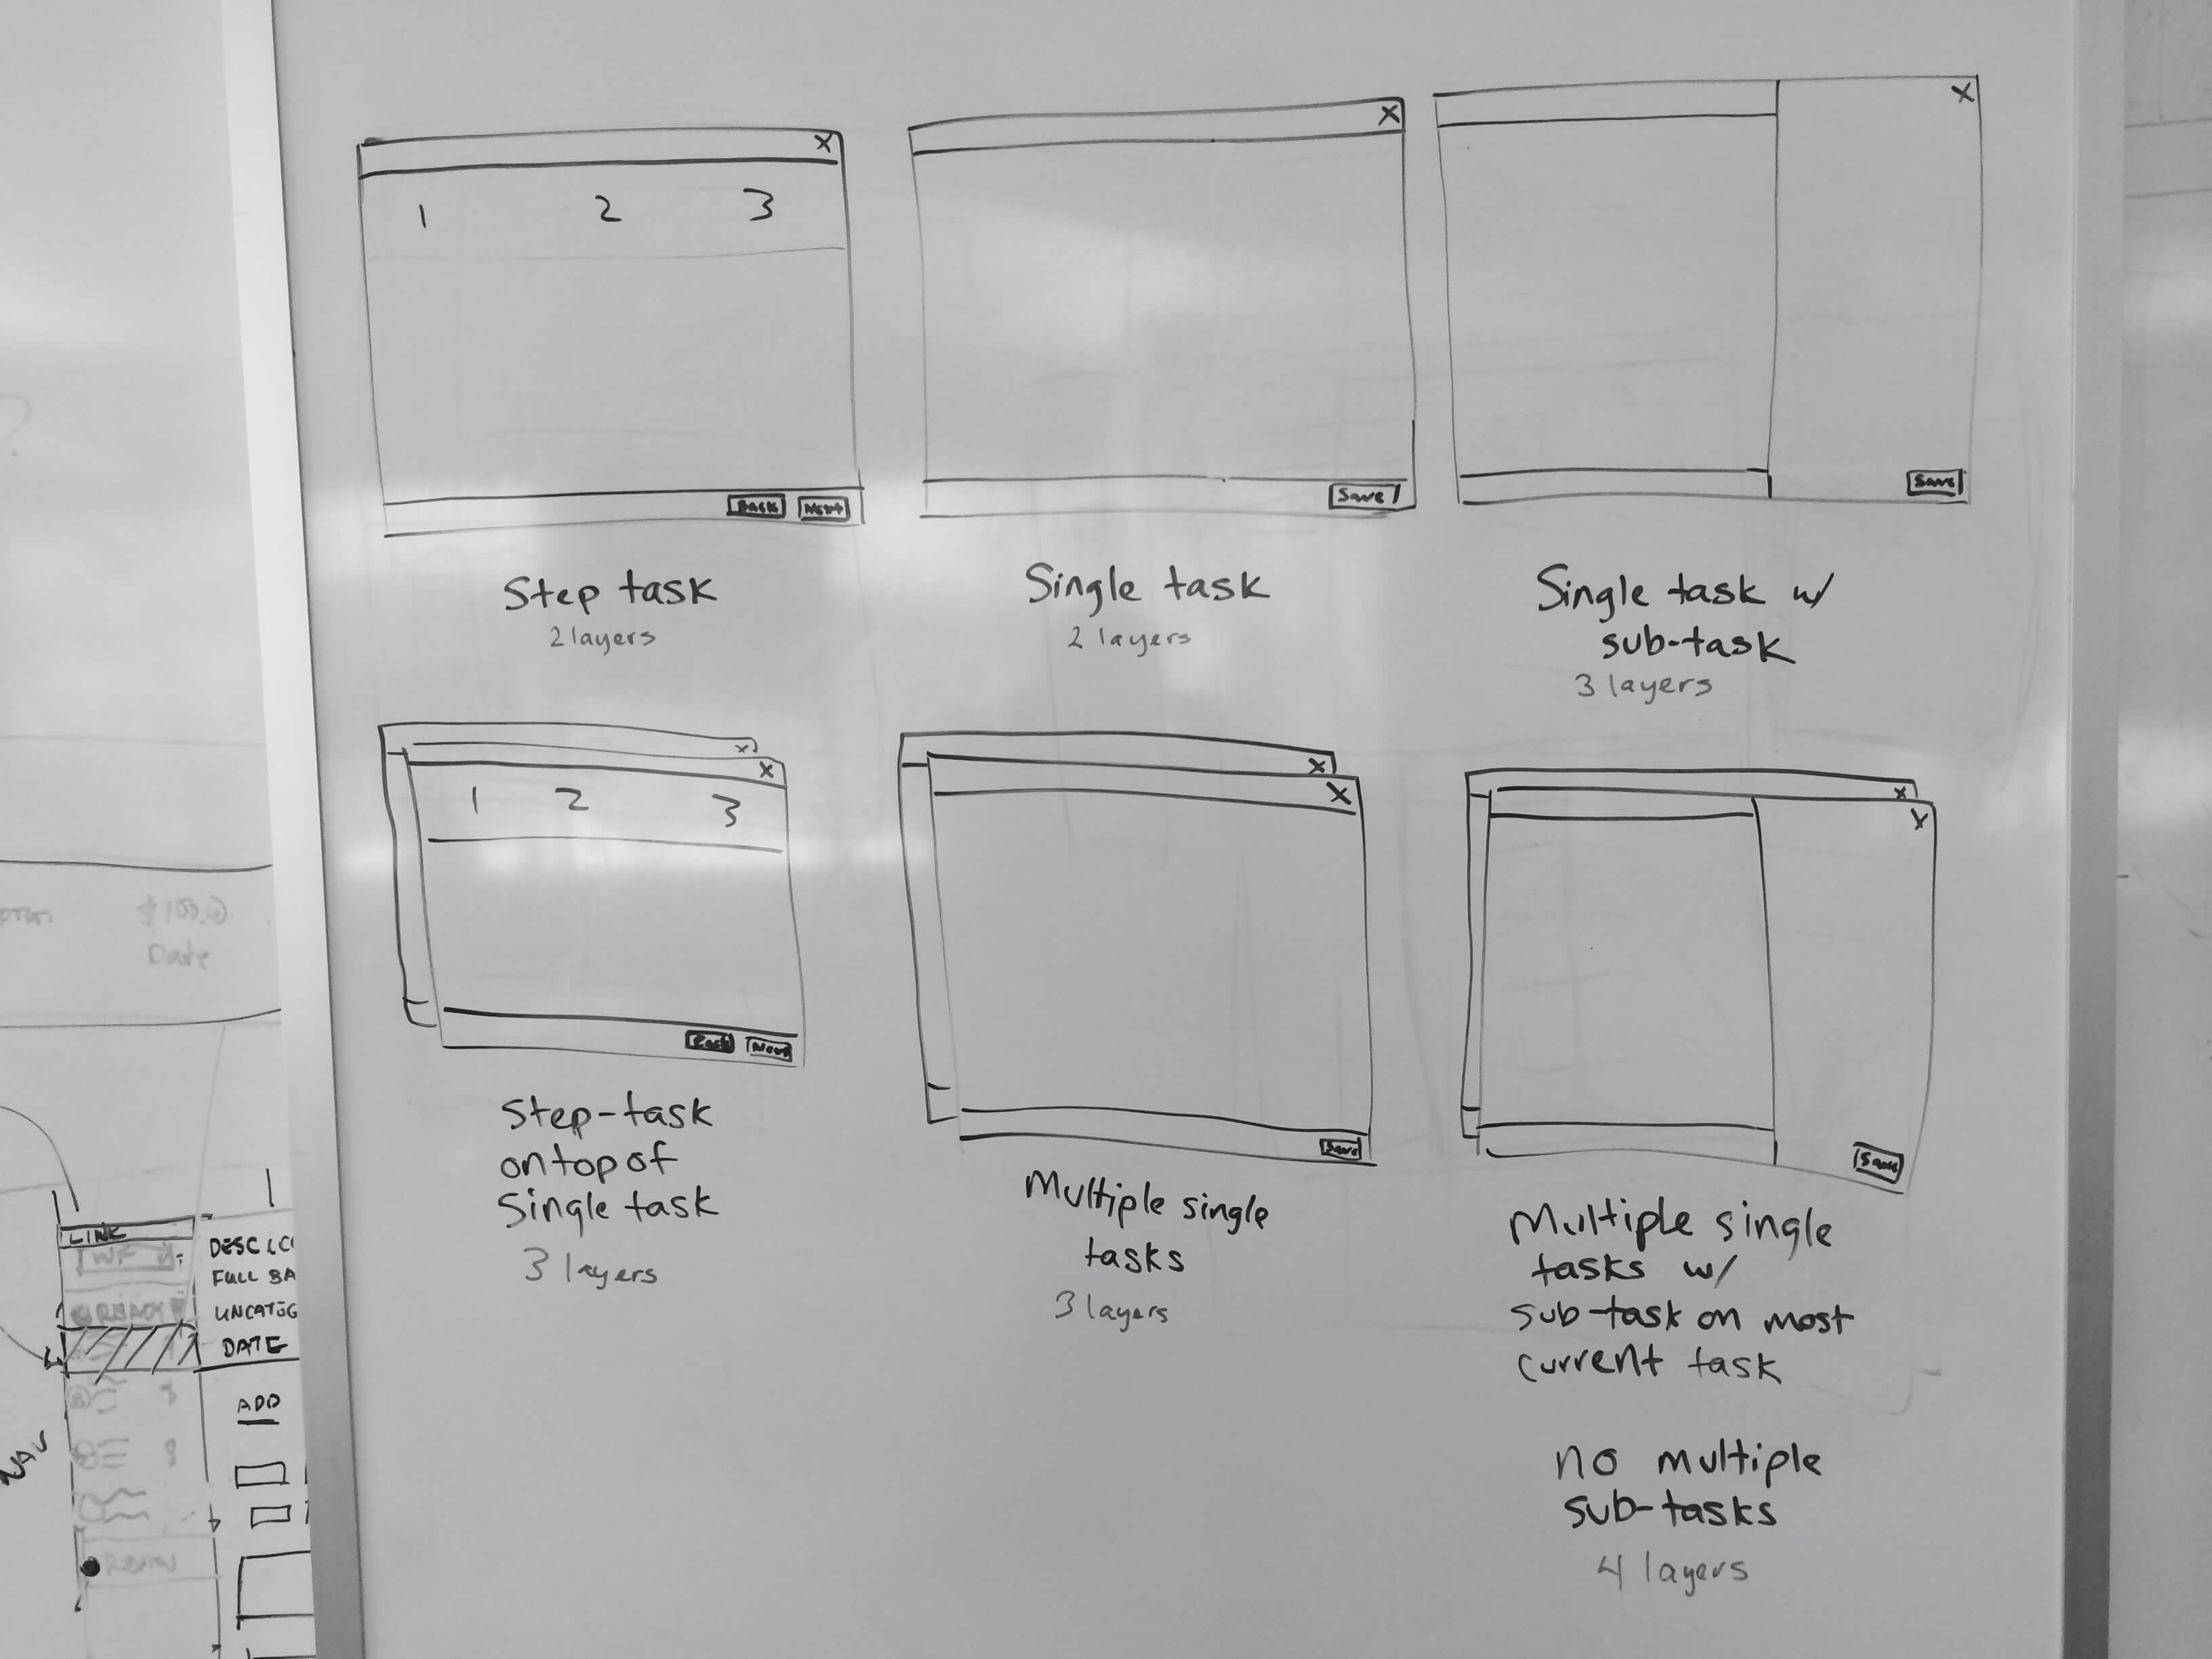 X
1 2 3
Back Next
Step task
2 layers
X
Save
Single task
2 layers
X
Save
Single task w/
sub-task
3 layers
X
X
1 2 3
Back Next
Step-task
on top of
Single task
3 layers
X
X
Save
Multiple single
tasks
3 layers
X
X
Save
Multiple single
tasks w/
sub-task on most
current task
no multiple
sub-tasks
4 layers
Date
LINK
DESC
FULL BA
UNCATEG
DATE
ADD